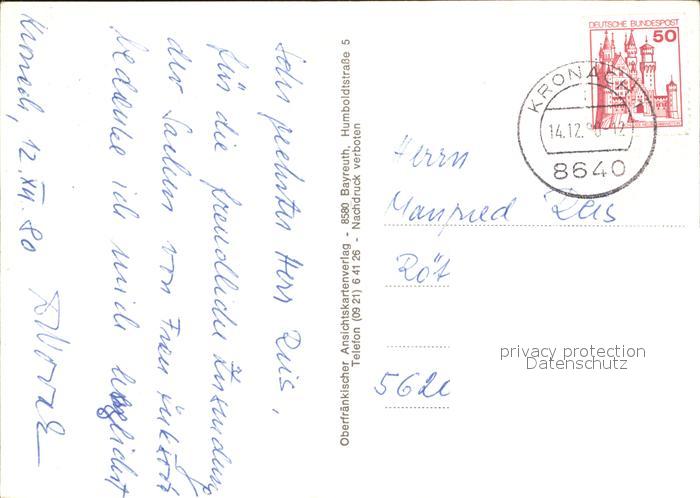 Sehr geehrter Herr Reis,
für die freundliche Zusendung
der Sachen von Frau
bedanke ich mich herzlichst
Kronach, 12.XII.80
Oberfränkischer Ansichtskartenverlag - 8580 Bayreuth, Humboldtstraße 5
Telefon (09 21) 6 41 26 - Nachdruck verboten
DEUTSCHE BUNDESPOST
50
KRONACH 1
14.12.80-12
8640
Herrn
Manfred Reis
562
privacy protection
Datenschutz